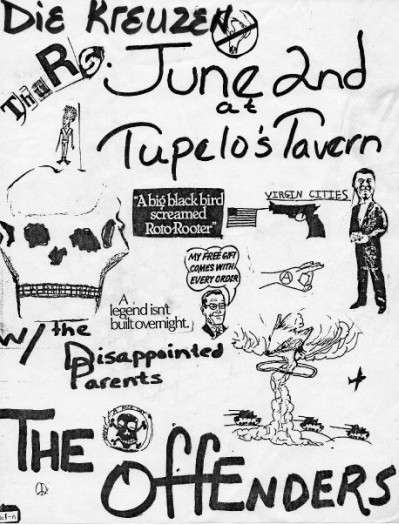 Die Kreuzen
Thurs.
June 2nd
at
Tupelo's Tavern
"A big black bird
screamed
Roto-Rooter"
VIRGIN CITIES
MY FREE GIFT
COMES WITH
EVERY ORDER
A
legend isn't
built overnight.
w/ the
Disappointed
Parents
THE OffENDERS